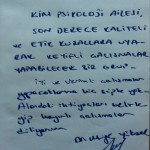 KİM PSİKOLOJİ AİLESİ,
SON DERECE KALİTELİ
VE ETİK KURALLARA UYA-
RAK KEYİFLİ ÇALIŞMALAR
YAPABİLECEK BİR GENÇ.
İyi ve verimli çalışmalar
yapacaklarına hiç şüphe yok.
Alandaki ihtiyaçları belirle-
yip başarılı çalışmalar
diliyorum